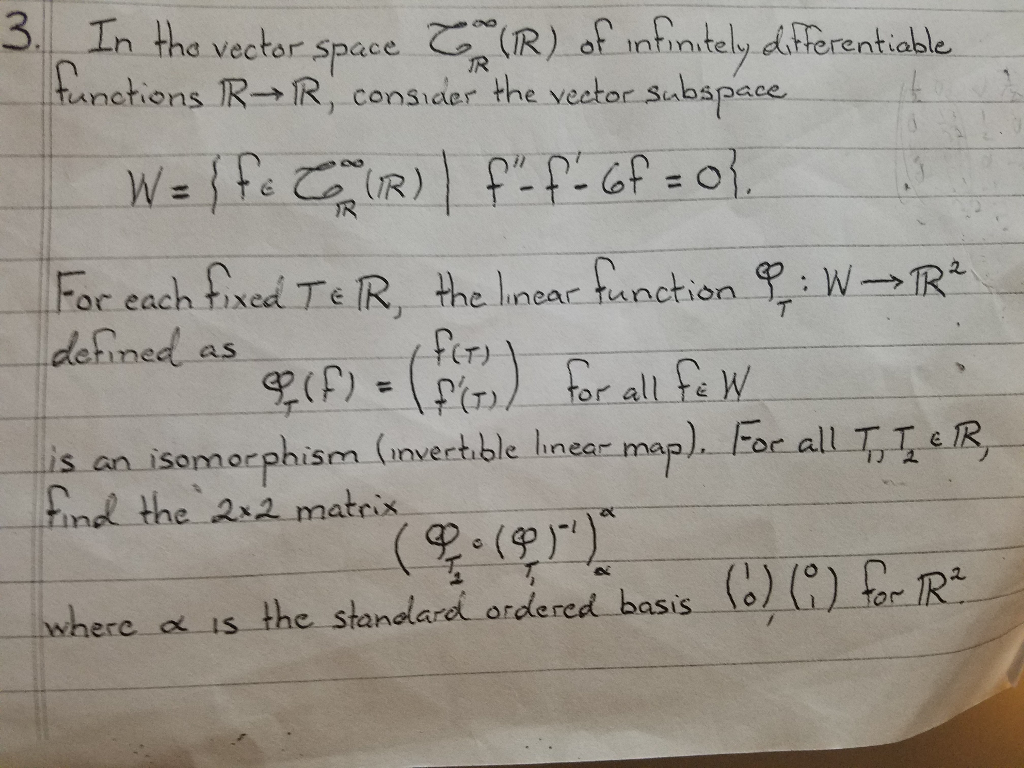 3. In the vector space C^∞_ℝ(ℝ) of infinitely differentiable
functions ℝ→ℝ, consider the vector subspace
W = { f ∈ C^∞_ℝ(ℝ) | f'' - f' - 6f = 0 }.
For each fixed T ∈ ℝ, the linear function φ_T : W → ℝ²
defined as
φ_T(f) = (f(T) f'(T)) for all f ∈ W
is an isomorphism (invertible linear map). For all T₁, T₂ ∈ ℝ,
find the 2×2 matrix
(φ_T₂ ∘ (φ_T₁)⁻¹)^α_α
where α is the standard ordered basis (1 0), (0 1) for ℝ².